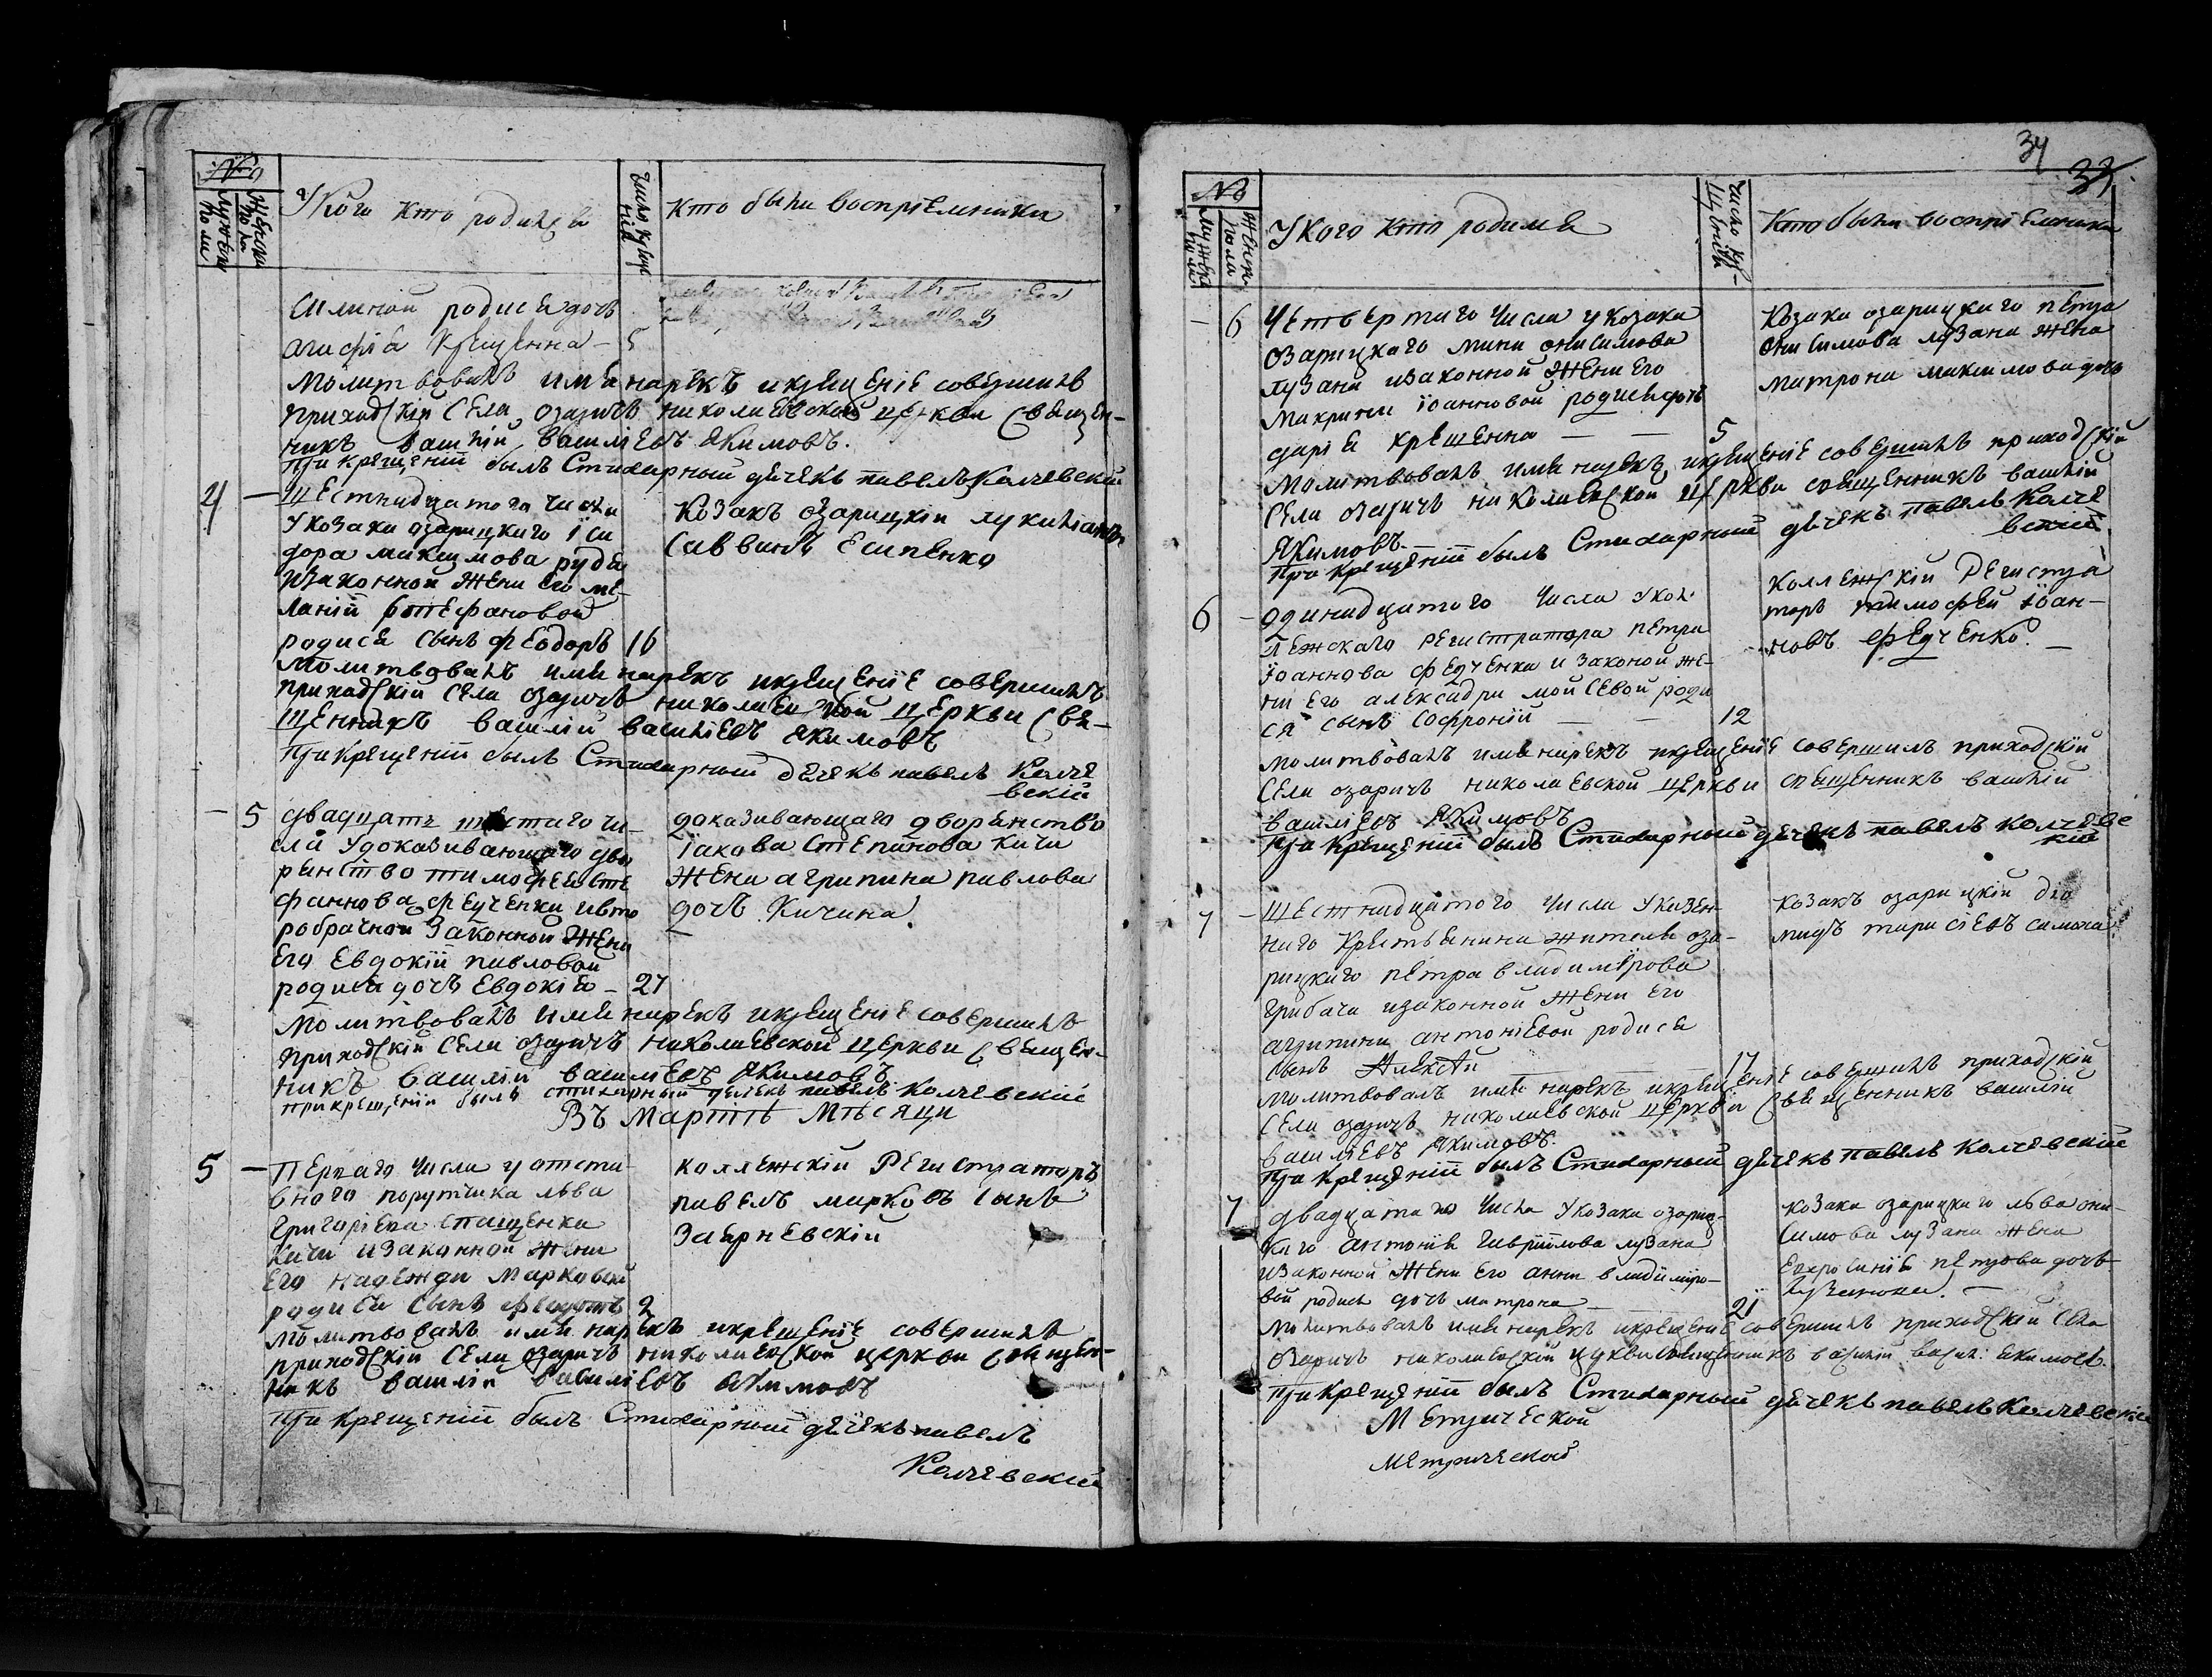 №
Мужеска пола
Женска пола
У кого кто родился
Число крещенія
Кто были воспріемники
силиной родися дочъ
агафія крещенна – 5
молитвовалъ имя нарекъ и крещеніе совершилъ
приходскій села озаричъ николаевской церкви священ-
никъ василій василіевъ Якимовъ.
При крещеніи былъ Стихарный дячекъ павелъ Калчевскій
4 – Шестнадцатого числа
у козака озарицкого іси
дора максимова руда
и законной жени его ме-
ланіи стефановой
родися сынъ феодоръ 16
Козакъ озарицкій
саввинъ Есипенко
молитвовалъ имя нарекъ и крещеніе совершилъ
приходскій села озаричъ николаевской церкви свя-
щенникъ василій василіевъ Якимовъ
При крещеніи былъ Стихарный дячекъ павелъ Калче
вскій
– 5 двадцать шестаго чи-
сла у доказивающаго дво
рянство тимофея сте
фанова федченки и вто
робрачной законной жени
его Евдокіи павловой
родися дочъ Евдокія – 27
доказивающаго дворянство
Іакова степанова кичи
жена агрипина павлова
дочъ Кичина
молитвовалъ имя нарекъ и крещеніе совершилъ
приходскій села озаричъ николаевской церкви священ-
никъ василій василіевъ Якимовъ
При крещеніи былъ стихарный дячекъ павелъ Калчевскій
Въ Мартѣ Мѣсяци
5 – Перваго числа у отста-
вного порутчика льва
григоріева стащенка
кичи и законной жени
его надежди марковой
родися сынъ федотъ 2
коллежскій Регистраторъ
павелъ марковъ сынъ
молитвовалъ имя нарекъ и крещеніе совершилъ
приходскій села озаричъ николаевской церкви священ-
никъ василій василіевъ Якимовъ
При крещеніи былъ Стихарный дячекъ павелъ
Калчевскій
34
33
№
Мужеска пола
Женска пола
У кого кто родился
Число крещенія
Кто были воспріемники
– 6 Четвертаго числа у козака
озарицкаго мини онисимова
лузана и законной жени его
макрини іоанновой родися дочъ
дарія крещенна – – 5
Козака озарицкаго петра
онисимова лузана жена
матрона максимова дочъ
молитвовалъ имя нарекъ и крещеніе совершилъ приходскій
села озаричъ николаевской церкви священникъ василій
Якимовъ.
При крещеніи былъ Стихарный дячекъ павелъ Калче
вскій
6 – одинадцатого числа у кол
лежскаго регистратора петра
іоаннова федченка и законой же-
ни его александри мойсевой роди
ся сынъ софроній – – 12
Коллежскій Регистра
торъ тимофей іоан-
новъ федченко. –
молитвовалъ имя нарекъ и крещеніе совершилъ приходскій
села озаричъ николаевской церкви священникъ василій
василіевъ Якимовъ
При крещеніи былъ Стихарный дячекъ павелъ Калчевс
кій
7 – Шестнадцатого числа у казен-
наго крестьянина жителя оза-
рицкаго петра владимѣрова
грибача и законной жени его
агрипини антоніевой родися
сынъ Алексѣй 17
козакъ озарицкій діо
мидъ тарасіевъ
молитвовалъ имя нарекъ и крещеніе совершилъ приходскій
села озаричъ николаевской церкви священникъ василій
василіевъ Якимовъ.
При крещеніи былъ Стихарный дячекъ павелъ Калчевскій
7 двадцатаго числа у козака озариц-
каго антонія гавріилова лузана
и законной жени его анни владиміро-
вой родися дочъ матрона – 21
козака озарицкаго льва они-
симова лузана жена
Евфросинія петрова дочъ
молитвовалъ имя нарекъ и крещеніе совершилъ приходскій села
озаричъ николаевской церкви священникъ василій васил: Якимовъ.
При крещеніи былъ Стихарный дячекъ павелъ Калчевскій
Метрической
метрической